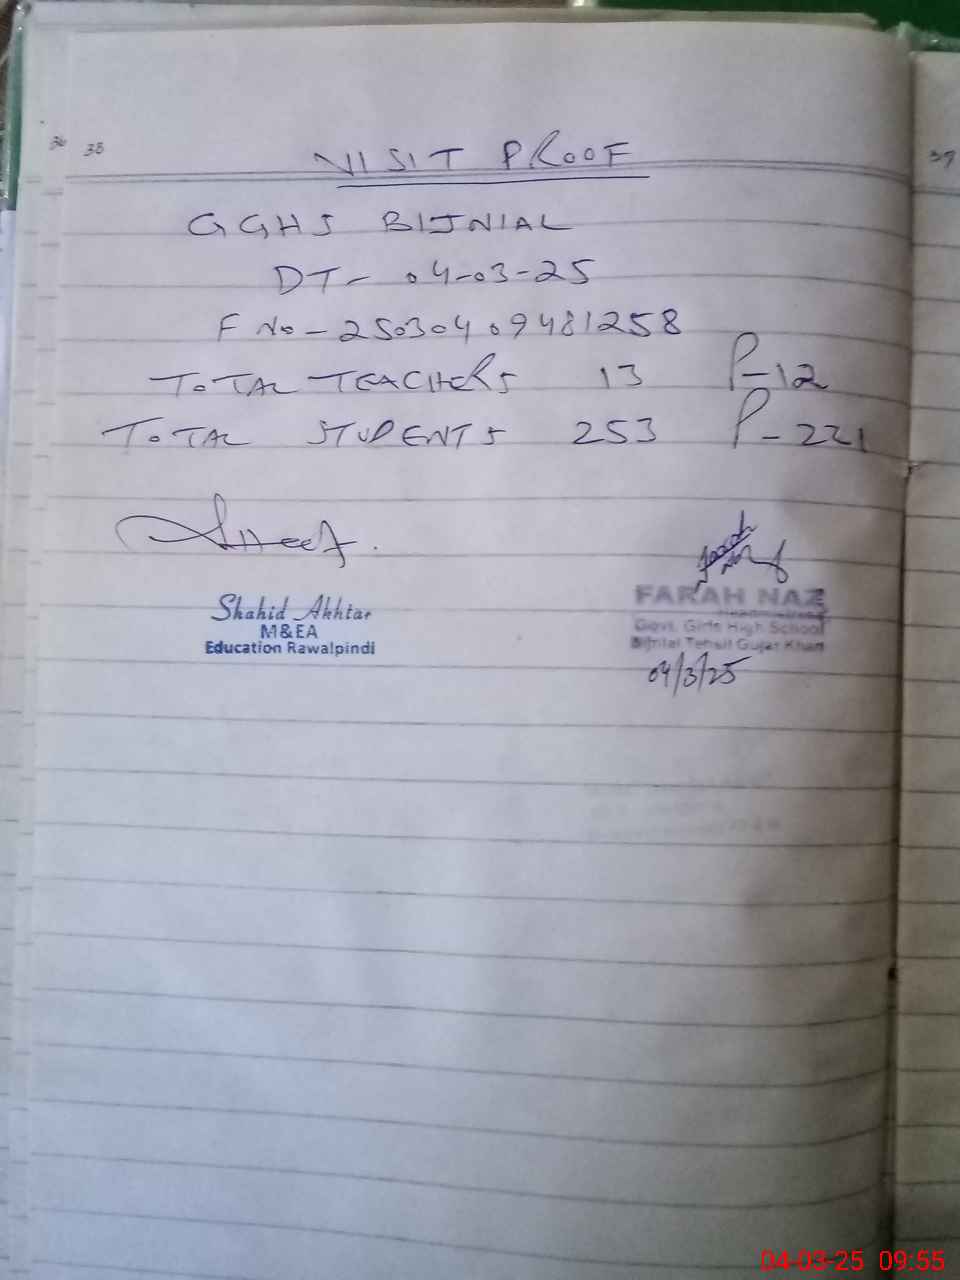 36 35
37
VISIT PROOF
GGHS BIJNIAL
DT- 04-03-25
F No - 25030409481258
TOTAL TEACHERS 13 P-12
TOTAL STUDENTS 253 P-221
Shahid Akhtar
M&EA
Education Rawalpindi
Farah Naz
FARAH NAZ
Headmistress
Govt. Girls High School
Bijnial Tehsil Gujar Khan
04/3/25
04-03-25 09:55